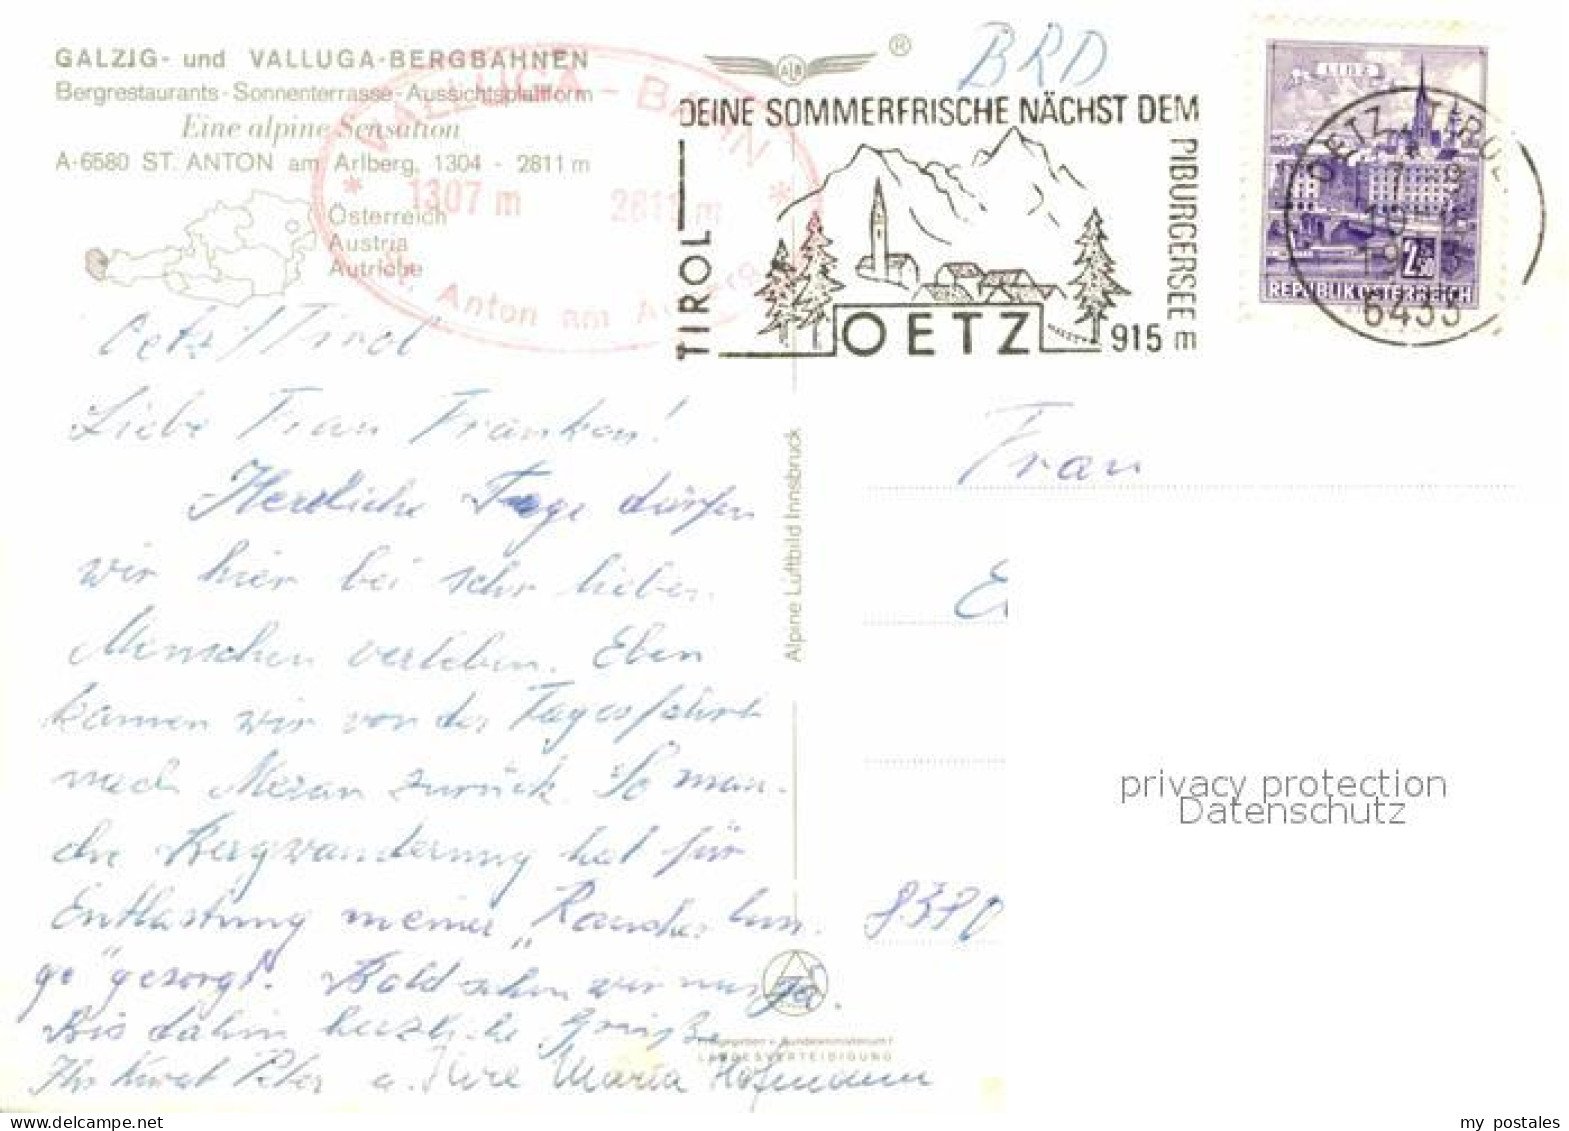 GALZIG- und VALLUGA-BERGBAHNEN
Bergrestaurants - Sonnenterrasse - Aussichtsplattform
Eine alpine Sensation
A-6580 ST. ANTON am Arlberg, 1304 - 2811 m
Österreich
Austria
Autriche
VALLUGA-BAHN
* 1307 m 2811 m *
St. Anton am Arlberg
ALB
®
BRD
DEINE SOMMERFRISCHE NÄCHST DEM
PIBURGERSEE
TIROL
OETZ
915 m
LINZ
2.50
REPUBLIK ÖSTERREICH
OETZ, TIROL
6433
Oetz/Tirol
Liebe Frau Franken!
Herrliche Tage dürfen
wir hier bei sehr lieben
Menschen verleben. Eben
kamen wir von der Tagesfahrt
nach Meran zurück. So man-
che Bergwanderung hat für
Entlastung meiner „Raucherlun-
ge" gesorgt. Bald sehen wir uns ja.
Bis dahin herzliche Grüße
Ihr Kurat Peter u. Ihre Maria Hofmann
Alpine Luftbild Innsbruck
Freigegeben v. Bundesministerium f.
LANDESVERTEIDIGUNG
Frau
E
8380
privacy protection
Datenschutz
my postales